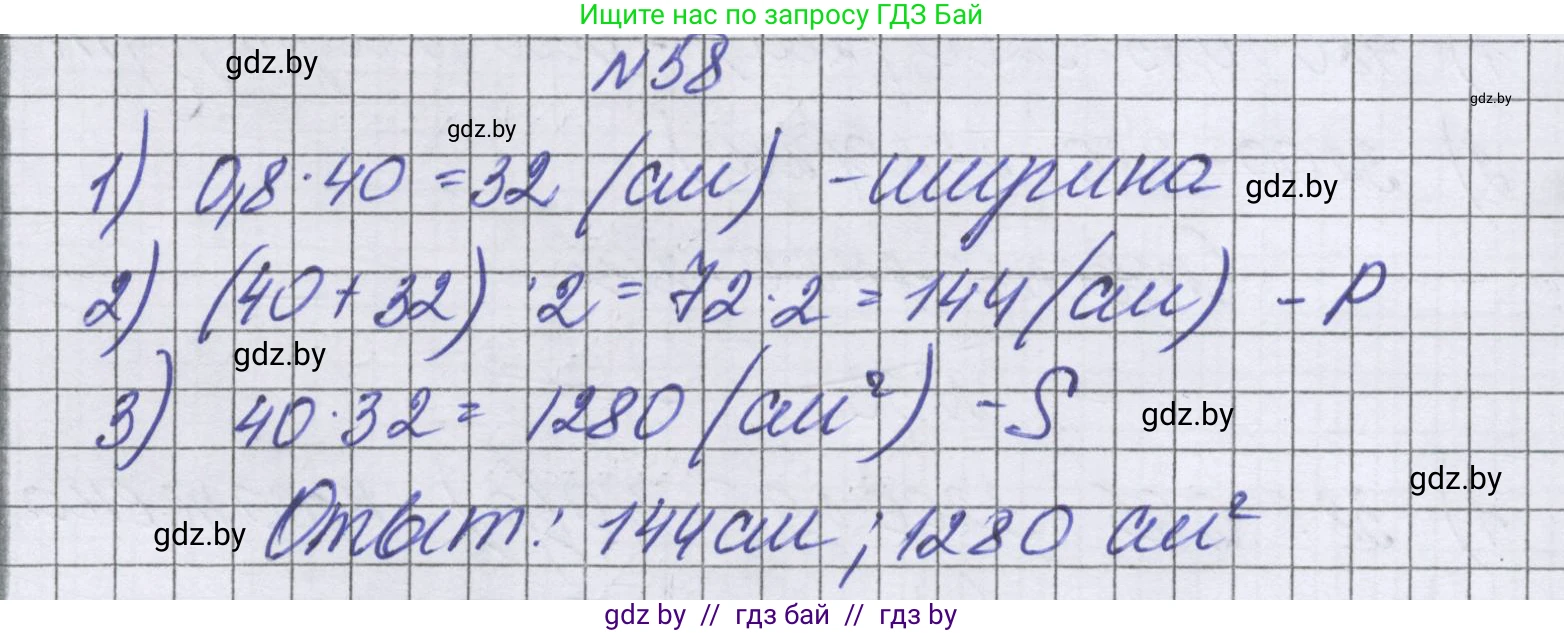 Ищите нас по запросу ГДЗ Бай
gdz.by
N58
gdz.by
gdz.by
1) 0,8 · 40 = 32 (см) - ширина
gdz.by
2) (40 + 32) · 2 = 72 · 2 = 144 (см) - P
gdz.by
3) 40 · 32 = 1280 (см²) - S
gdz.by
gdz.by
gdz.by
Ответ: 144 см ; 1280 см²
gdz.by // гдз бай // гдз by